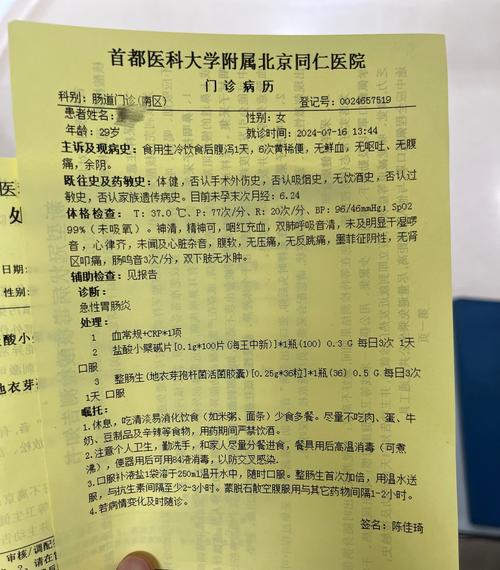 首都医科大学附属北京同仁医院
门诊病历
科别: 肠道门诊(南区)
登记号: 0024657519
患者姓名:
性别: 女
年龄: 29岁
就诊时间: 2024-07-16 13:44
主诉及现病史: 食用生冷饮食后腹泻1天, 6次黄稀便, 无鲜血, 无呕吐, 无腹
痛, 余阴.
既往史及药敏史: 体健, 否认手术外伤史, 否认吸烟史, 无饮酒史, 否认过
敏史, 否认家族遗传病史. 目前未孕末次月经: 6.24
体格检查: T: 37.0 ℃, P: 77次/分, R: 20次/分, BP: 96/46mmHg; SpO2
99% (未吸氧). 神清, 精神可, 咽红充血, 双肺呼吸音清, 未及明显干湿啰
音, 心律齐, 未闻及心脏杂音, 腹软, 无压痛, 无反跳痛, 墨菲征阴性, 无肾
区叩痛, 肠鸣音3次/分, 双下肢无水肿.
辅助检查: 见报告
诊断:
急性胃肠炎
处理:
1 血常规+CRP*1项
2 盐酸小檗碱片[0.1g*100片(海王中新)]*1瓶(100) 0.3 G 每日3次 1天
口服
3 整肠生(地衣芽孢杆菌活菌胶囊)[0.25g*36粒]*1瓶(36) 0.5 G 每日3次
1天 口服
嘱托:
1.休息, 吃清淡易消化饮食(如米粥、面条)少食多餐。尽量不吃肉、蛋、牛
奶、豆制品及辛辣等食物, 用药期间严禁饮酒。
2.注意个人卫生, 勤洗手, 和家人尽量分餐进食, 餐具用后高温消毒(可煮
沸), 便器用后可用84液消毒, 以防交叉感染.
3.口服补液盐1袋溶于250ml温开水中, 随时口服。整肠生首次加倍, 用温水送
服, 与抗生素间隔至少2-3小时。蒙脱石散空腹服用与其它药物间隔1-2小时。
4.若病情变化及时随诊。
签名: 陈佳琦
医科
处
日期:
性别:
酸小
地衣芽
审核/调配